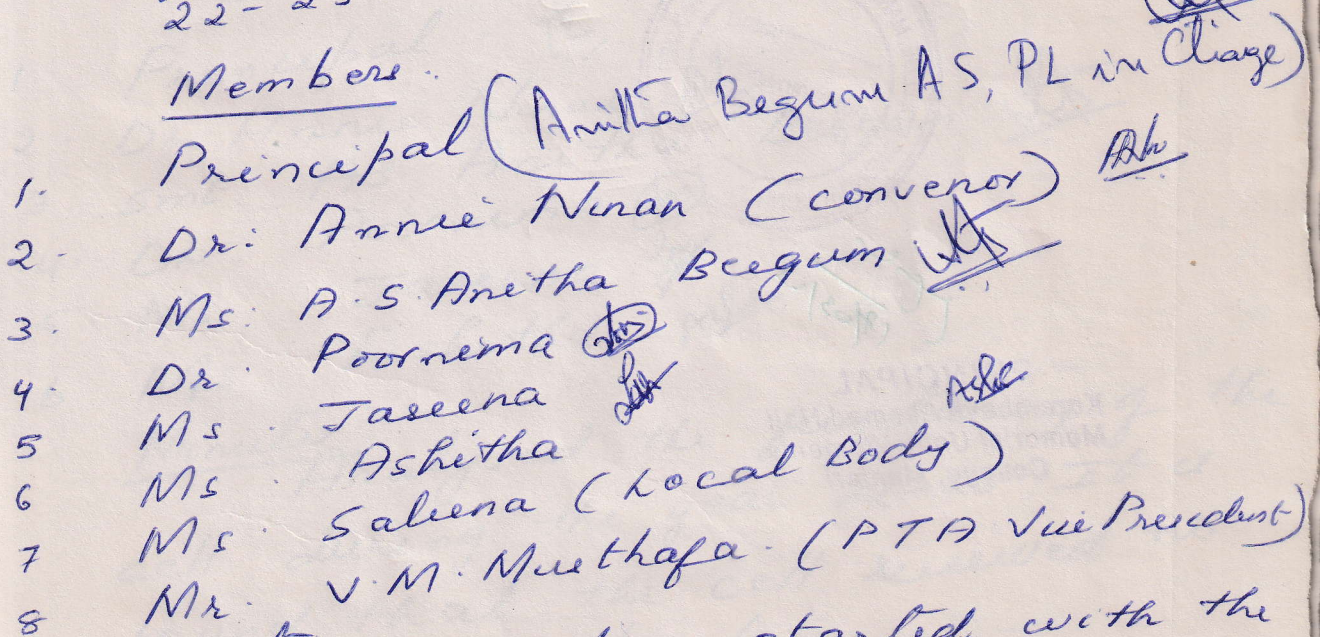 22-23
Members.
1. Principal (Anitha Begum AS, PL in Charge)
2. Dr: Annie Ninan (Convenor)
3. Ms: A.S. Anitha Beegum
4. Dr. Poornima
5 Ms. Jaseena
6 Ms. Ashitha
7 Ms. Sabeena (Local Body)
8 Mr. V.M. Musthafa. (PTA Vice President)
started with the